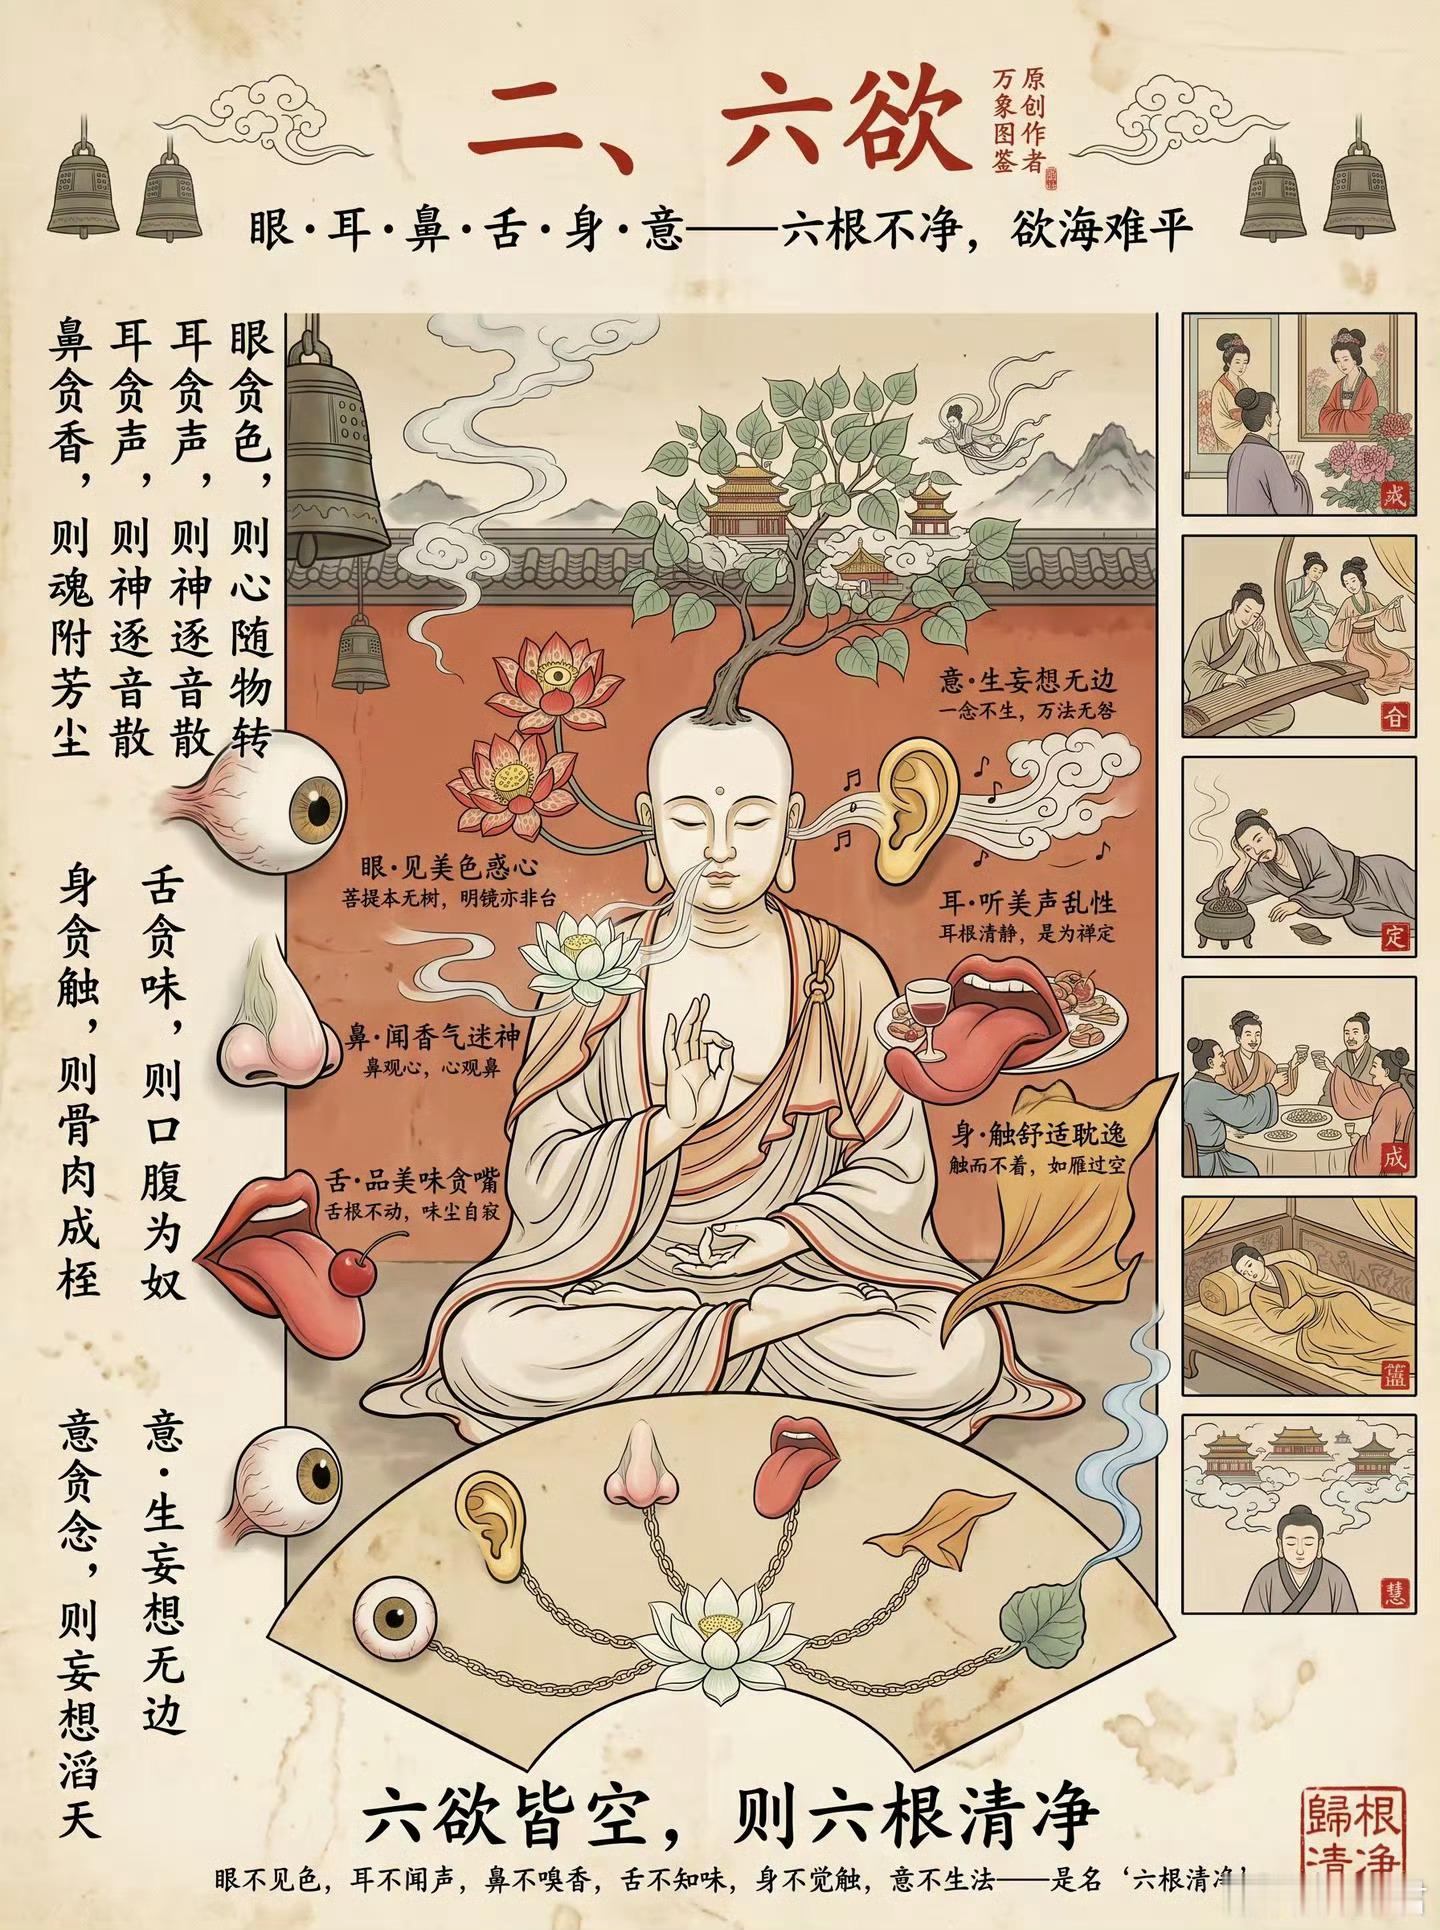 二、六欲
原创作者
万象图签
眼·耳·鼻·舌·身·意——六根不净，欲海难平
眼贪色，则心随物转
耳贪声，则神逐音散
耳贪声，则神逐音散
鼻贪香，则魂附芳尘
舌贪味，则口腹为奴
身贪触，则骨肉成桎
意·生妄想无边
意贪念，则妄想滔天
意·生妄想无边
一念不生，万法无咎
眼·见美色惑心
菩提本无树，明镜亦非台
耳·听美声乱性
耳根清静，是为禅定
鼻·闻香气迷神
鼻观心，心观鼻
身·触舒适耽逸
触而不着，如雁过空
舌·品美味贪嘴
舌根不动，味尘自寂
戒
定
成
慧
六欲皆空，则六根清净
眼不见色，耳不闻声，鼻不嗅香，舌不知味，身不觉触，意不生法——是名‘六根清净’
根净
歸清